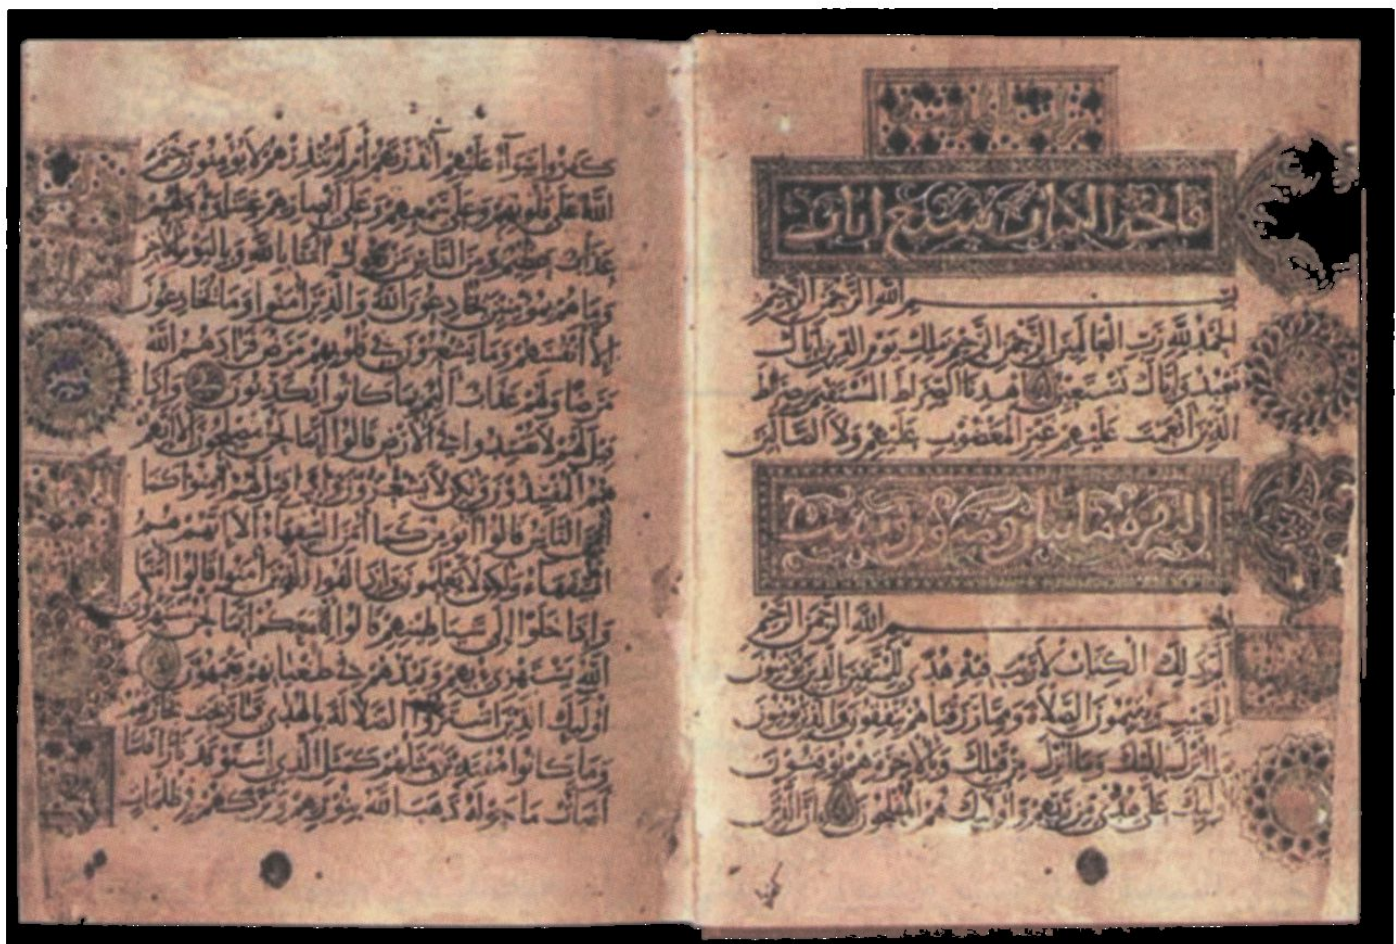 فاتحة الكتاب سبع ايات
بسم الله الرحمن الرحيم
الحمد لله رب العالمين الرحمن الرحيم ملك يوم الدين اياك
نعبد واياك نستعين اهدنا الصراط المستقيم صراط
الذين انعمت عليهم غير المغضوب عليهم ولا الضالين
البقرة مائتان وثمانون وست
بسم الله الرحمن الرحيم
الم ذلك الكتاب لا ريب فيه هدى للمتقين الذين يؤمنون
بالغيب ويقيمون الصلاة ومما رزقناهم ينفقون والذين يؤمنون
بما انزل اليك وما انزل من قبلك وبالاخرة هم يوقنون
اولئك على هدى من ربهم واولئك هم المفلحون ان الذين
كفروا سواء عليهم أأنذرتهم أم لم تنذرهم لا يؤمنون ختم
الله على قلوبهم وعلى سمعهم وعلى أبصارهم غشاوة ولهم
عذاب عظيم ومن الناس من يقول آمنا بالله وباليوم الآخر
وما هم بمؤمنين يخادعون الله والذين آمنوا وما يخادعون
إلا أنفسهم وما يشعرون في قلوبهم مرض فزادهم الله
مرضا ولهم عذاب أليم بما كانوا يكذبون وإذا
قيل لهم لا تفسدوا في الأرض قالوا إنما نحن مصلحون ألا إنهم
هم المفسدون ولكن لا يشعرون وإذا قيل لهم آمنوا كما
آمن الناس قالوا أنؤمن كما آمن السفهاء ألا إنهم هم
السفهاء ولكن لا يعلمون وإذا لقوا الذين آمنوا قالوا آمنا
وإذا خلوا إلى شياطينهم قالوا إنا معكم إنما نحن مستهزئون
الله يستهزئ بهم ويمدهم في طغيانهم يعمهون
أولئك الذين اشتروا الضلالة بالهدى فما ربحت تجارتهم
وما كانوا مهتدين مثلهم كمثل الذي استوقد نارا فلما
أضاءت ما حوله ذهب الله بنورهم وتركهم في ظلمات